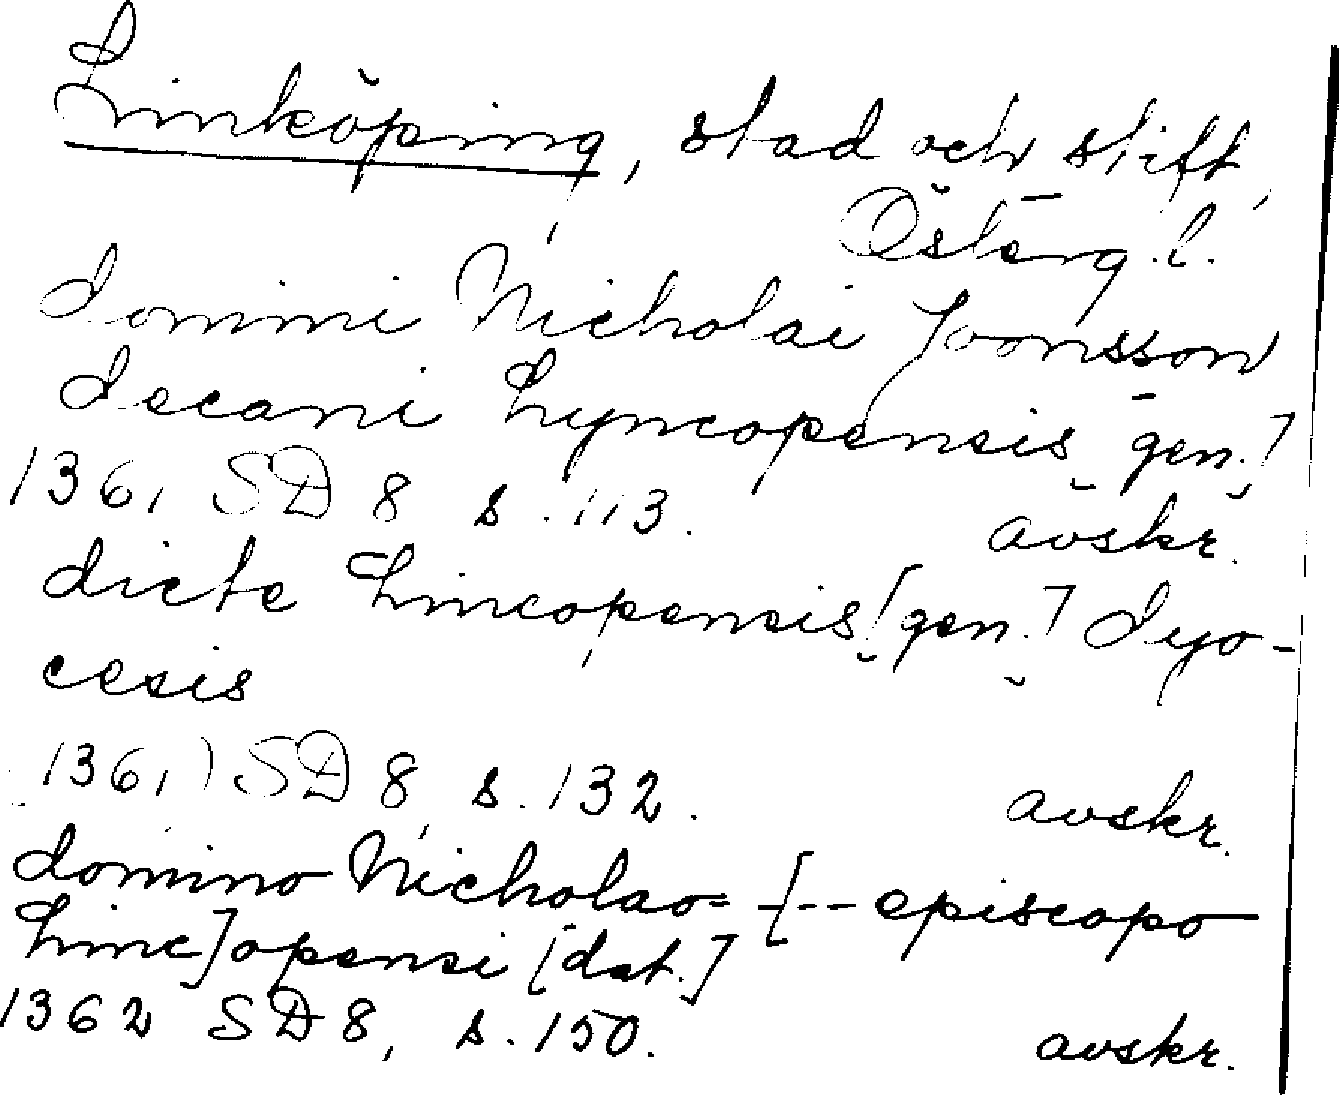 Linköping, stad och stift,
Österg.l.
domini Nicholai Joonsson
decani Lyncopensis gen.]
1361 SD 8 s. 113. avskr.
dicte Lincopensis [gen.] dyo-
cesis
1361) SD 8, s. 132. avskr.
domino Nicholao [--- episcopo
Linc]opensi [dat.]
1362 SD 8, s. 150. avskr.